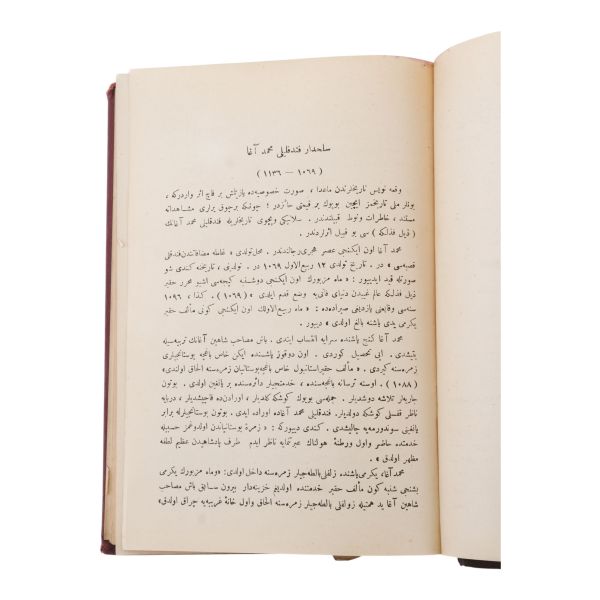 سلحدار فندقلیلی محمد آغا
( ١٠٦٩ — ١١٣٦ )
وقعه نویس تاریخلرندن ماعدا ، صورت خصوصیه‌ده یازیلمش بر قاچ اثر واردرکه ،
بونلر ملی تاریخمز ایچین بویوك بر قیمتی حائزدر ؛ چونکه برچوق یرلری مشاهداته
مستند ، خاطرات ونوط قبیلندندر . سلانیکی وپچوی تاریخلریله فندقلیلی محمد آغانك
( ذیل فذلکه ) سی بو قبیل اثرلردندر .
محمد آغا اون ایکنجی عصر هجری رجالندندر . محل تولدی « غلطه مضافاتندن فندقلی
قصبه‌سی » در . تاریخ تولدی ١٢ ربیع‌الاول ١٠٦٩ در . تولدینی ، تاریخنه کندی شو
صورتله قید ایدییور : « ماه مزبورك اون ایکنجی دوشنبه کیجه‌سی اشبو محرر حقیر
ذیل فذلکه عالم غیبدن دنیای فانی‌یه وضع قدم ایلدی » ( ١٠٦٩ ) . کذا ، ١٠٩٦
سنه‌سی وقایعنی یازدیغی صیراده‌ده : « ماه ربیع‌الاولك اون ایکنجی کونی مؤلف حقیر
یکرمی یدی یاشنه بالغ اولدی » دییور .
محمد آغا کنج یاشنده سرایه انتساب ایتدی . باش مصاحب شاهین آغانك تربیه‌سیله
یتیشدی . ایی تحصیل کوردی . اون دوقوز یاشنده ایکن خاص باغچه بوستانجیلری
زمره‌سنه کیردی . « مؤلف حقیر استانبول خاص باغچه بوستانیان زمره‌سنه الحاق اولندی »
( ١٠٨٨ ) . اوسنه ترسانه باغچه‌سنده ، خدمتجیلر دائره‌سنده بر یانغین اولدی . بوتون
جاریه‌لر تلاشه دوشدیلر . جمله‌سی بویوك کوشکه کلدیلر ، اورادن‌ده قاچیشدیلر ، دریایه
ناظر قفسلی کوشکه دولدیلر . فندقلیلی محمد آغاده اوراده ایدی . بوتون بوستانجیلرله برابر
یانغینی سوندورمه‌یه چالیشدی . کندی دییورکه : « زمرۀ بوستانیاندن اولدوغمز حسبیله
خدمتده حاضر واول ورطۀ هولناك عبرتنمایه ناظر ایدم طرف پادشاهیدن عظیم لطفه
مظهر اولدق » .
محمد آغا ، یکرمی یاشنده زلفلی بالطه‌جیلر زمره‌سنه داخل اولدی : « وماه مزبورك یکرمی
بشنجی شنبه کون مؤلف حقیر خدمتنده اولدیغم خزینه‌دار بیرون سابق باش مصاحب
شاهین آغا ید همتیله زلفلی بالطه‌جیلر زمره‌سنه الحاق واول خانۀ غریبیه‌یه چراق اولدق »